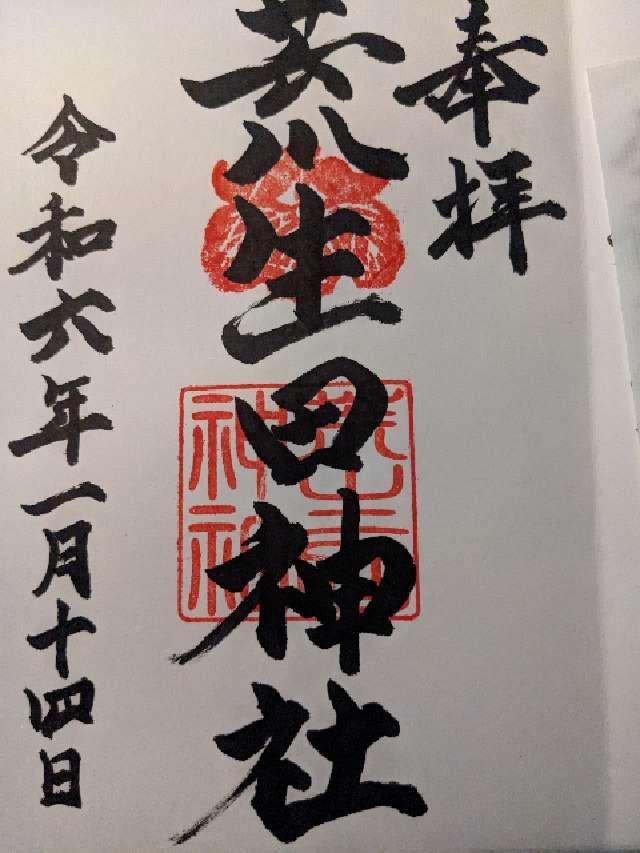 奉拝
荒生田神社
令和六年一月十四日